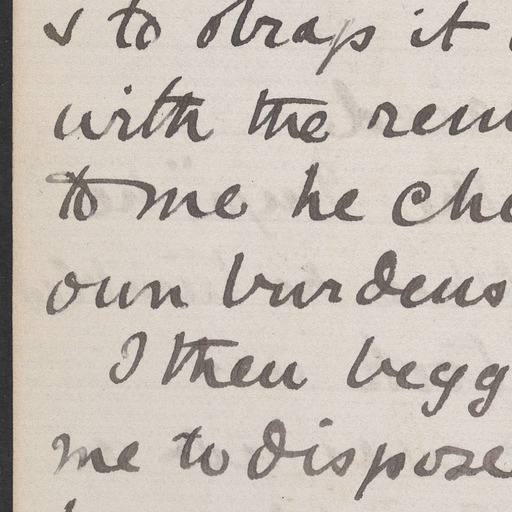 s to strap it
with the rem
to me he cho
own burdens
I then begg
me to dispose